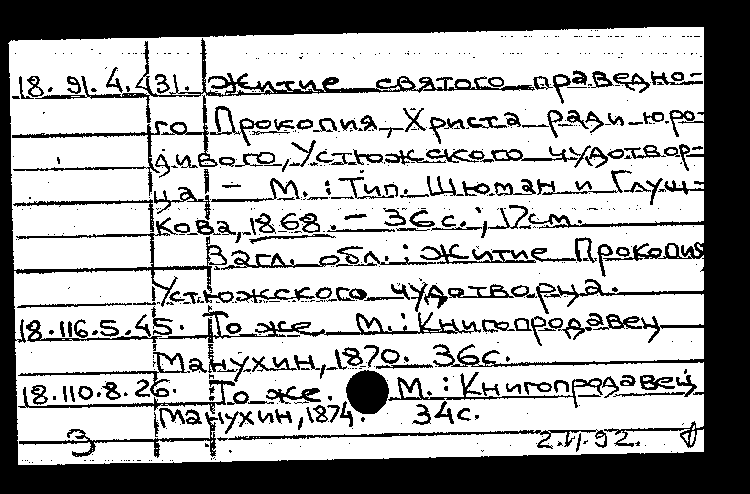 18. 91.4.431. Житие святого праведно-
го Прокопия, Христа ради юро-
дивого, Устюжского чудотвор-
ца – М.: Тип. Шюман и Глуш-
кова, 1868. – 36 с.; 17см.
Загл. обл.: Житие Прокопия
Устюжского чудотворца.
18.116.5.45. То же. М.: Книгопродавец
Манухин, 1870. 36с.
18.110.8.26. То же. М.: Книгопродавец
Манухин, 1874. 34с.
З 2.VI.92.